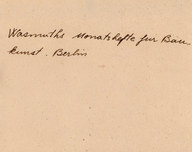 Wasmuths Monatshefte fur Bau-
kunst. Berlin